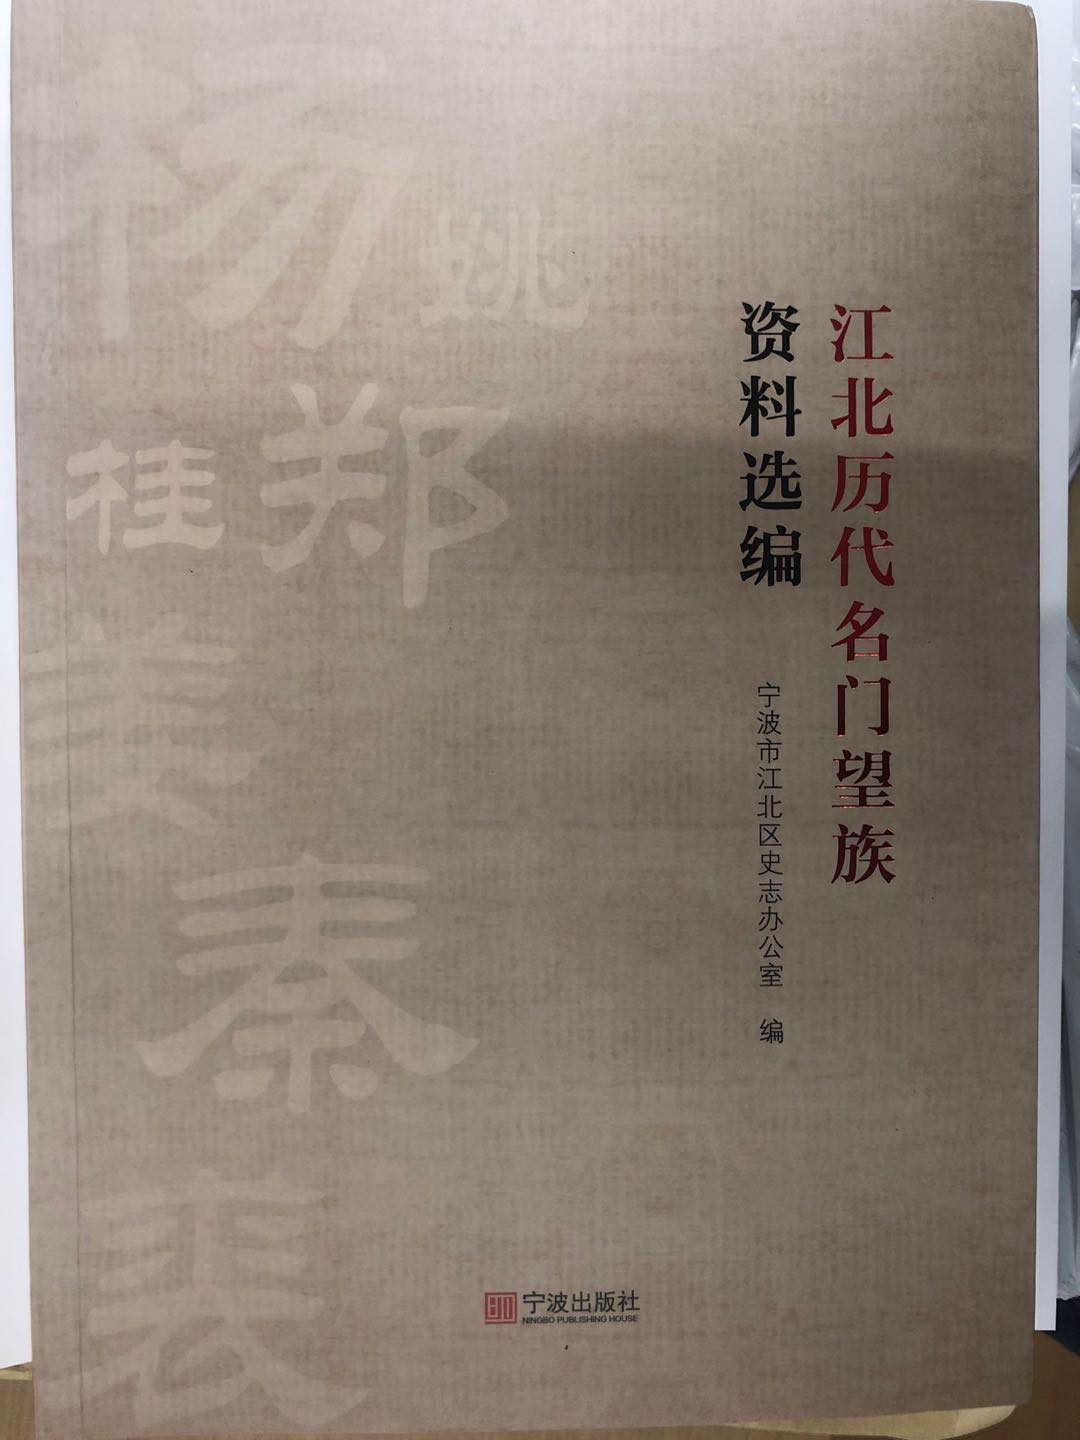 江北历代名门望族
资料选编
宁波市江北区史志办公室 编
杨
姚
郑
桂
姜
秦
裘
宁波出版社
NINGBO PUBLISHING HOUSE